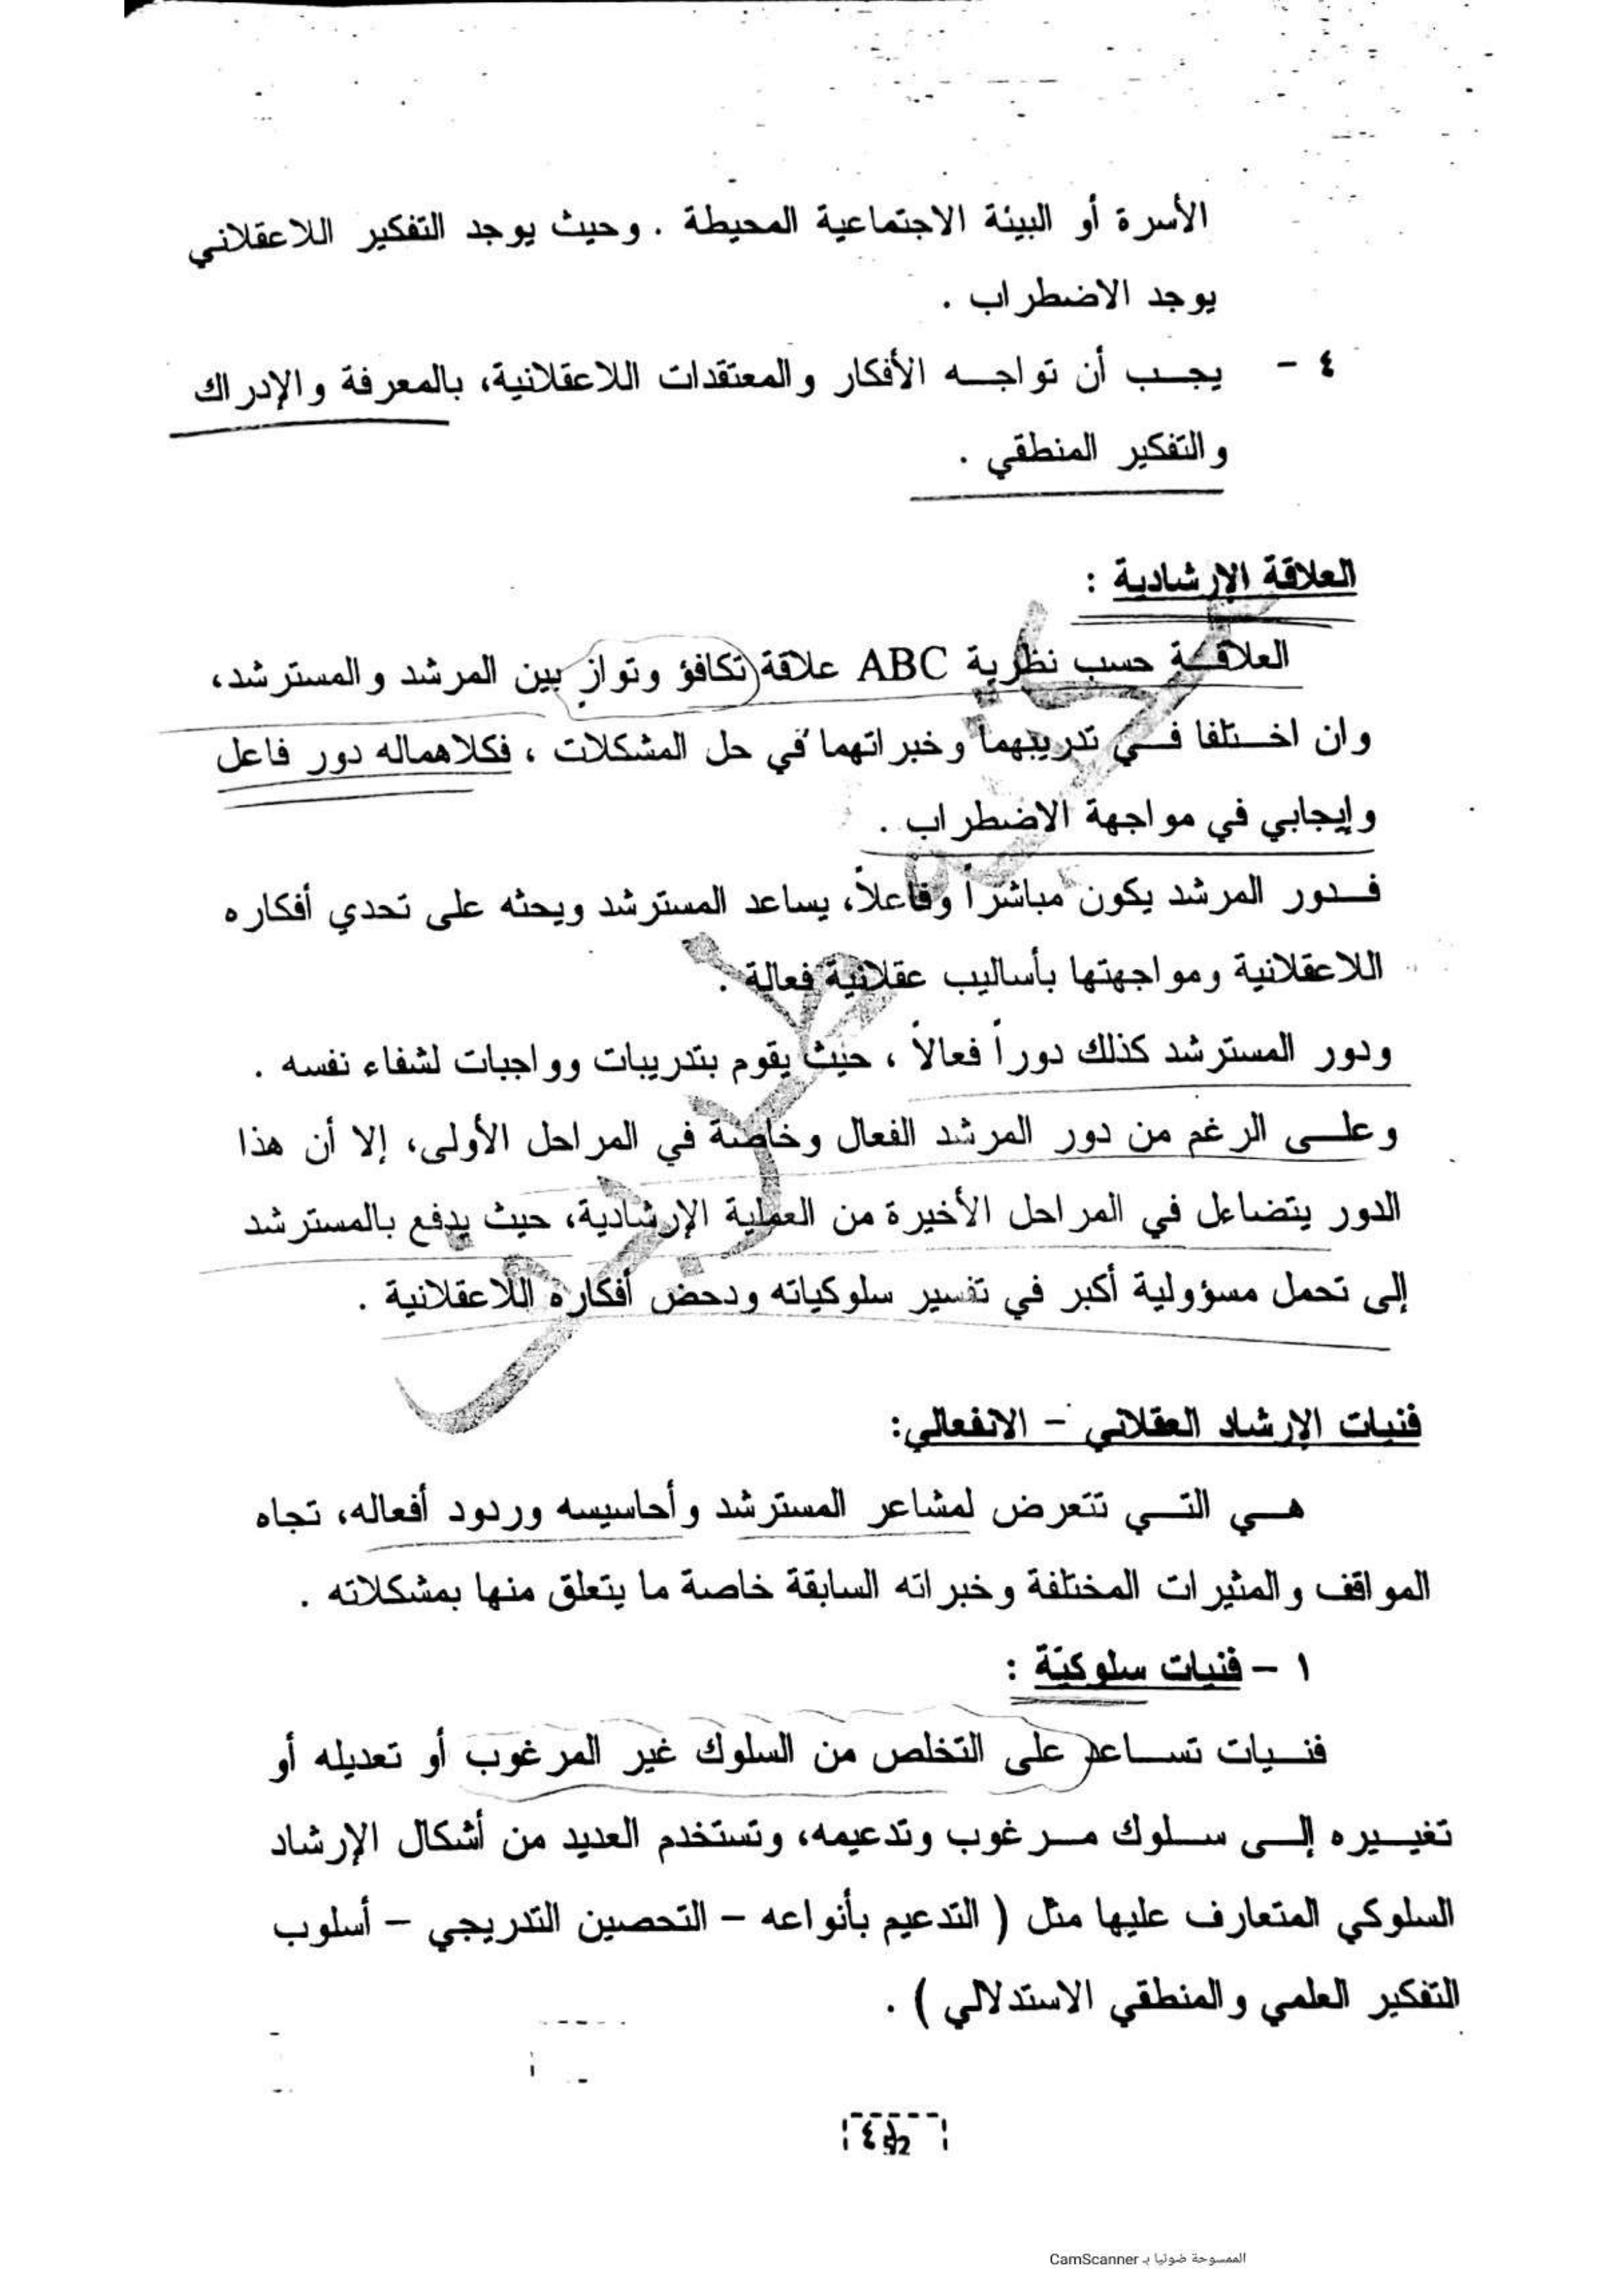 الأسرة أو البيئة الاجتماعية المحيطة . وحيث يوجد التفكير اللاعقلاني
يوجد الاضطراب .
٤ - يجب أن تواجه الأفكار والمعتقدات اللاعقلانية، بالمعرفة والإدراك
والتفكير المنطقي .
العلاقة الإرشادية :
العلاقة حسب نظرية ABC علاقة تكافؤ وتواز بين المرشد والمسترشد،
وان اختلفا في تدريبهما وخبراتهما في حل المشكلات ، فكلاهماله دور فاعل
وإيجابي في مواجهة الاضطراب .
فدور المرشد يكون مباشراً وفاعلاً، يساعد المسترشد ويحثه على تحدي أفكاره
اللاعقلانية ومواجهتها بأساليب عقلانية فعالة .
ودور المسترشد كذلك دوراً فعالاً ، حيث يقوم بتدريبات وواجبات لشفاء نفسه .
وعلى الرغم من دور المرشد الفعال وخاصة في المراحل الأولى، إلا أن هذا
الدور يتضاءل في المراحل الأخيرة من العملية الإرشادية، حيث يدفع بالمسترشد
إلى تحمل مسؤولية أكبر في تفسير سلوكياته ودحض أفكاره اللاعقلانية .
فنيات الإرشاد العقلاني – الانفعالي:
هي التي تتعرض لمشاعر المسترشد وأحاسيسه وردود أفعاله، تجاه
المواقف والمثيرات المختلفة وخبراته السابقة خاصة ما يتعلق منها بمشكلاته .
١ – فنيات سلوكيّة :
فنيات تساعد على التخلص من السلوك غير المرغوب أو تعديله أو
تغييره إلى سلوك مرغوب وتدعيمه، وتستخدم العديد من أشكال الإرشاد
السلوكي المتعارف عليها مثل ( التدعيم بأنواعه – التحصين التدريجي – أسلوب
التفكير العلمي والمنطقي الاستدلالي ) .
الممسوحة ضوئيا بـ CamScanner